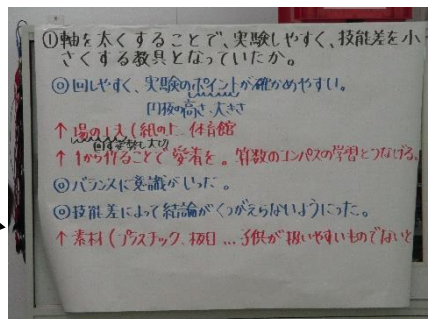 ①軸を太くすることで、実験しやすく、技能差を小
さくする教具となっていたか。
◎回しやすく、実験のポイントが確かめやすい。
円板の高さ、大きさ
↑場の工夫(紙の上、体育館
回す姿勢も大切
↑1から作ることで愛着を。算数のコンパスの学習とつなげる。
◎バランスに意識がいった。
◎技能差によって結論がくつがえらないようにった。
↑素材(プラスチック、板目…子供が扱いやすいものでないと